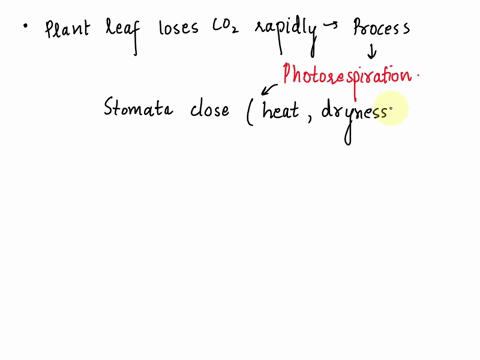 • Plant leaf loses CO2 rapidly → Process
↓
Photorespiration.
Stomata close (heat, dryness